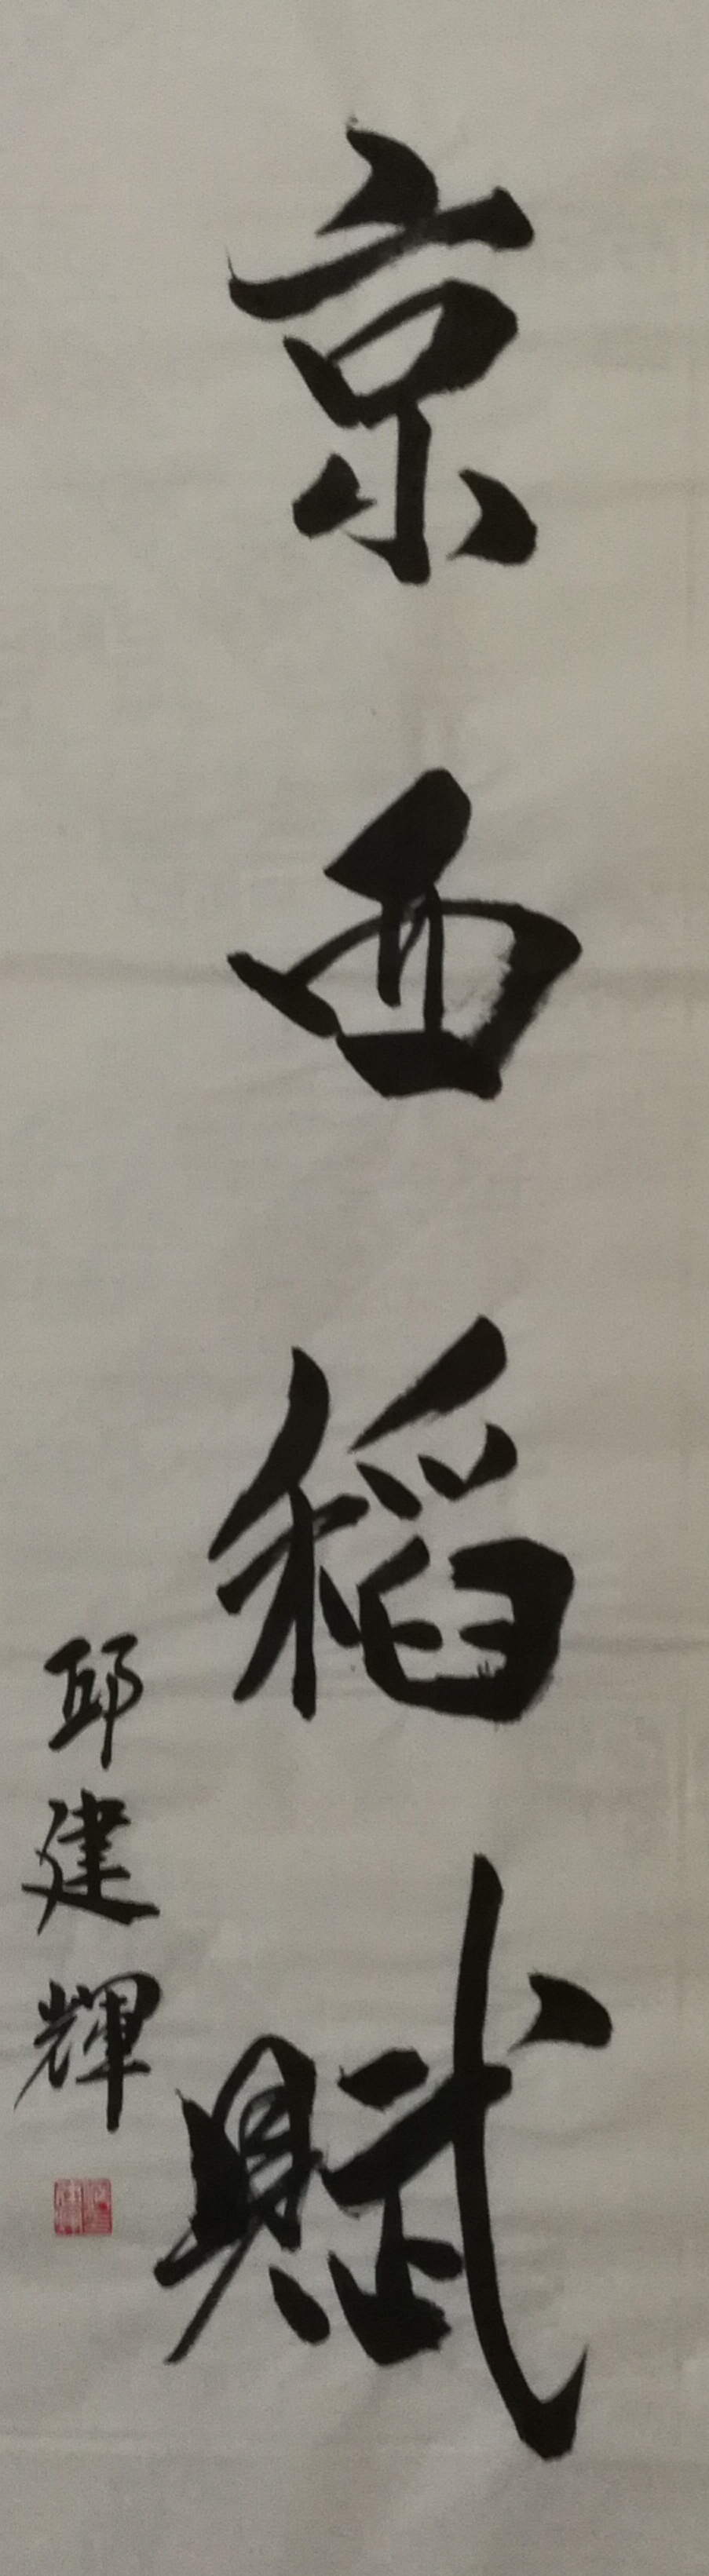 京西稻賦
邱建輝